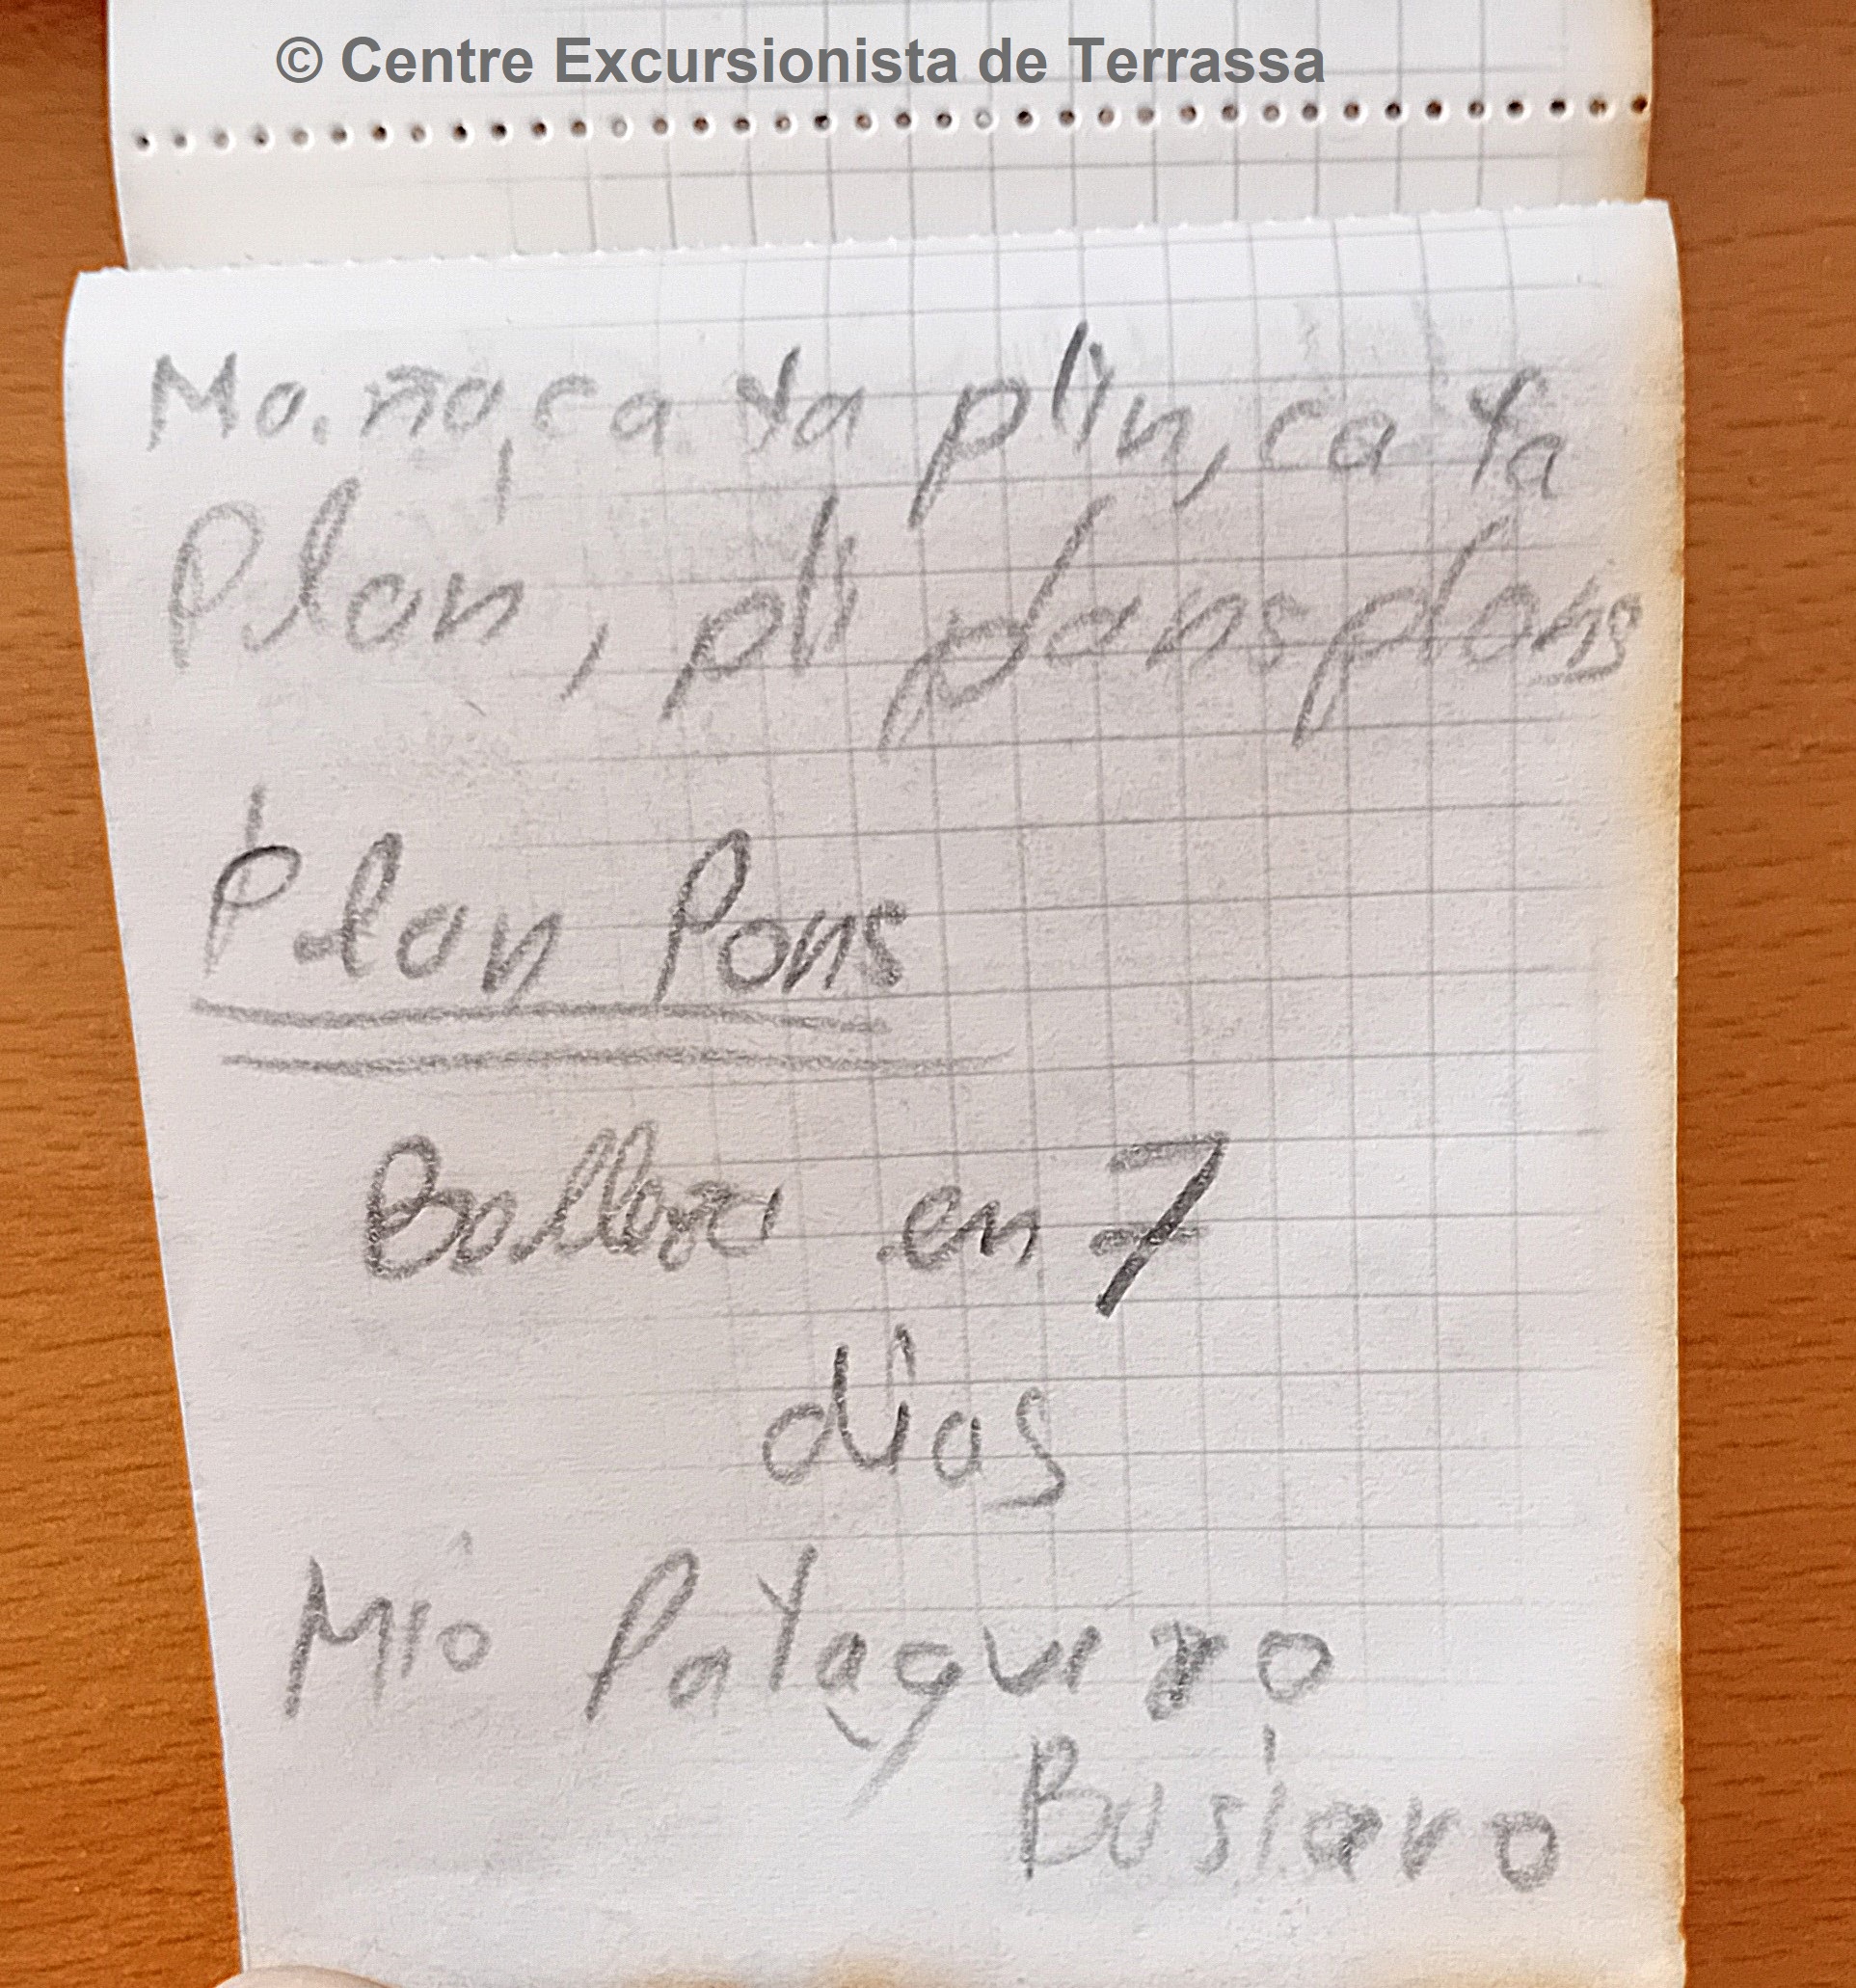 © Centre Excursionista de Terrassa
Mo.ño, ca ta plin, ca ta
Plan, pli plans plons
Plan Pons
en 7
días
Mio Pataguero
Busiaro